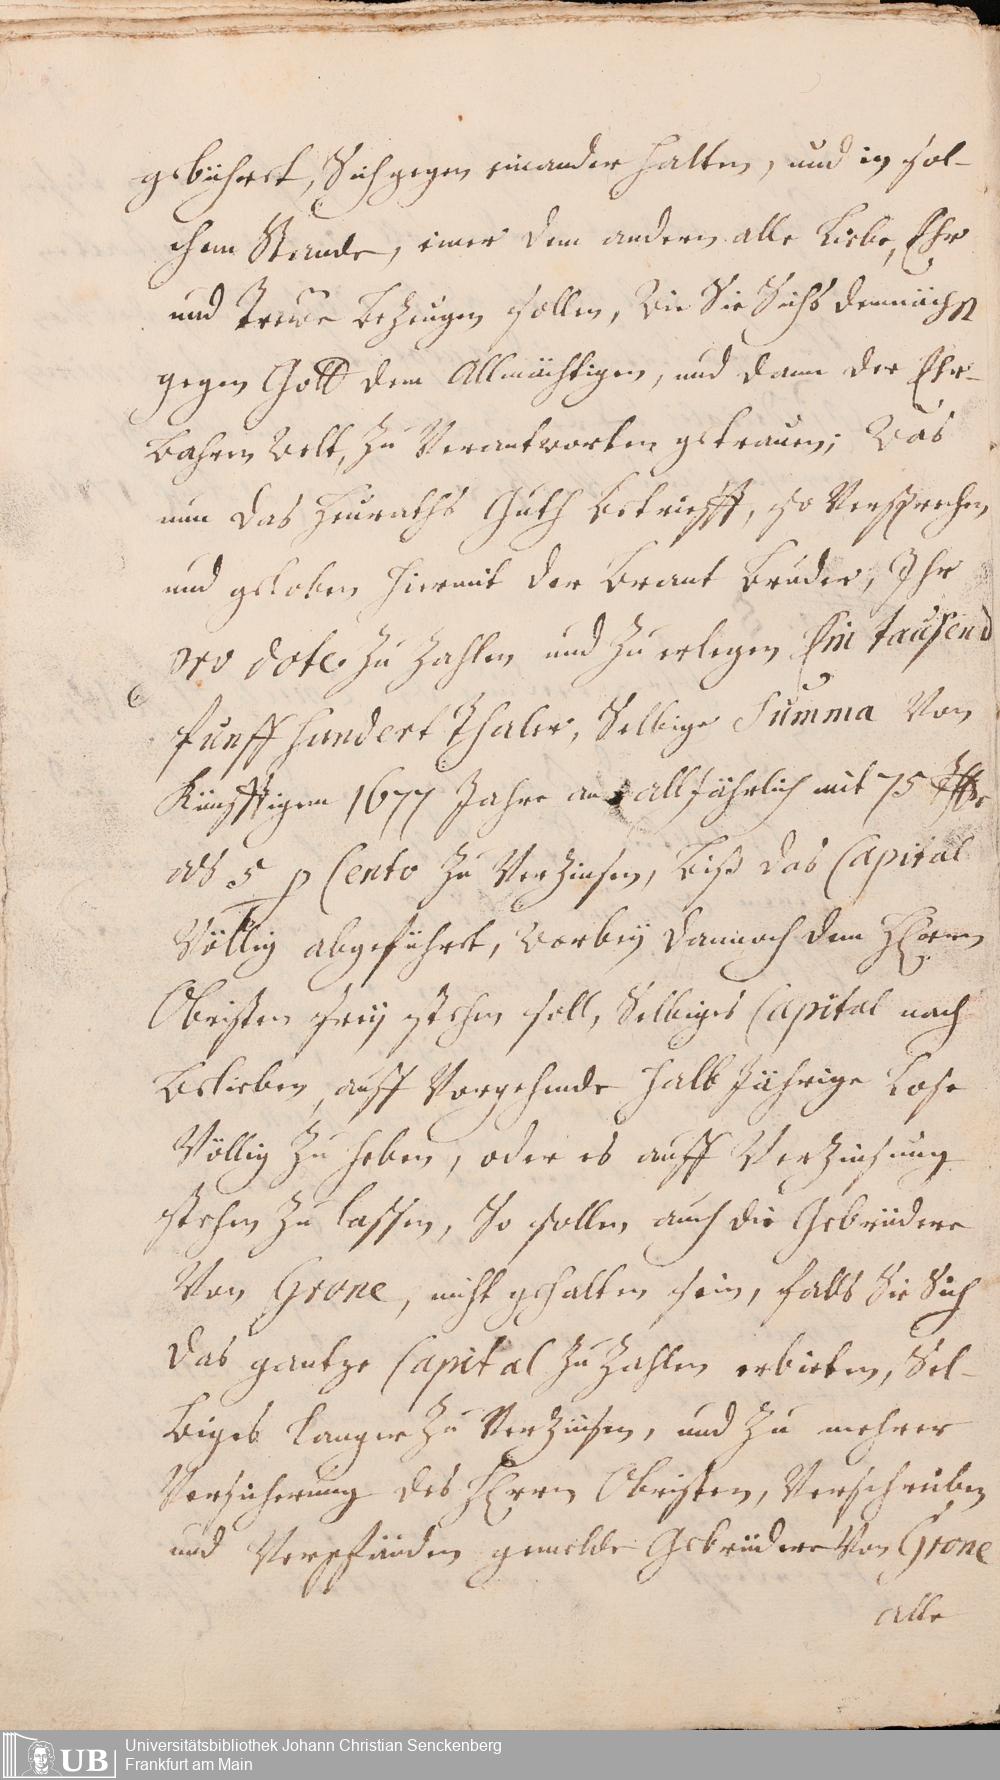 gebühret, Sich gegen einander halten, und in sol-
chem Stande, einer dem andern alle Liebe, Ehr
und Treüe bezeugen sollen, Wie Sie Sichs demnächst
gegen Gott dem Allmächtigen, und dann der Ehr-
bahren Welt, zu Verantworten getrauen; Was
nun das Heuraths Guth betriefft, so Versprechen
und geloben hiermit der Braut Brüder, Ihr
pro dote zu zahlen und zu erlegen Ein tausend
funff hundert Thaler, Selbige Summa Von
Künfftigem 1677 Jahre an alljährlich mit 75 Thlr
als 5 p Cento zu Verzinsen, biß das Capital
Völlig abgeführet, Worbeÿ dannoch dem HErrn
Obristen freÿ stehen soll, Selbiges Capital nach
belieben, auff Vorgehende halb Jährige Lose
Völlig zu heben, oder es auff Verzinsung
stehen zu lassen, So sollen auch die Gebrüdere
Von Grone, nicht gehalten sein, falls Sie Sich
das gantze Capital zu zahlen erbieten, Sel-
biges langer zu Verzinsen, und zu mehrer
Versicherung des HErrn Obristen, Verschreiben
und Verpfänden gemelde Gebrüdere Von Grone
alle
UB
Universitätsbibliothek Johann Christian Senckenberg
Frankfurt am Main